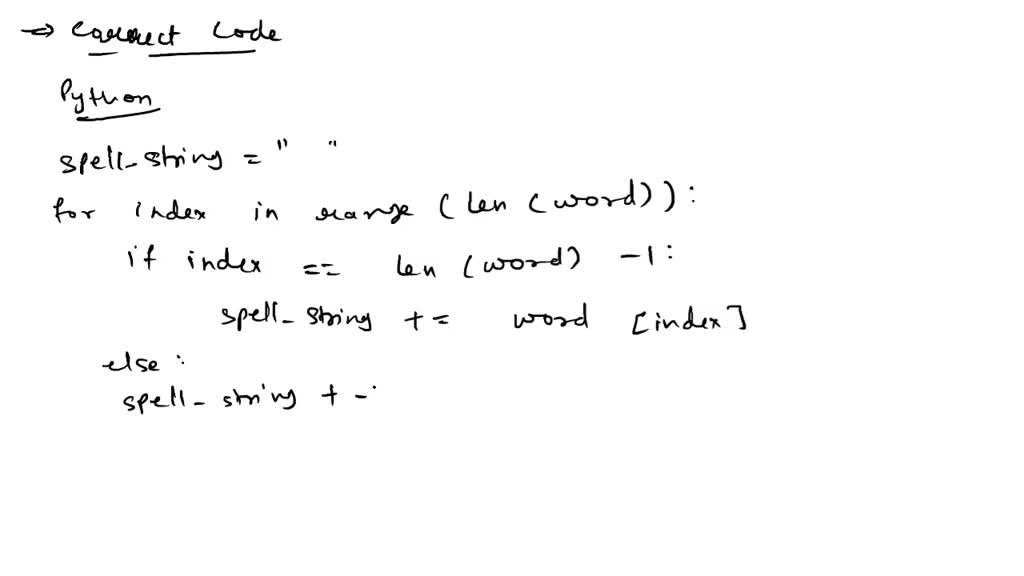 → Correct Code
Python
spell_string = " "
for index in range (len (word)):
if index == len (word) -1:
spell_string += word [index]
else:
spell_string + -